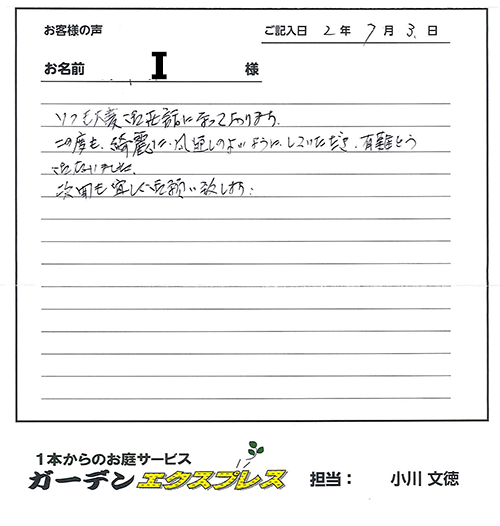 お客様の声
ご記入日 2 年 7 月 3 日
お名前 I 様
いつも大変御世話になっております。
この度も、綺麗に、風通しのよいように、していただき、有難とう
ございました。
次回も宜しく御願い致します。
1本からのお庭サービス
ガーデンエクスプレス 担当： 小川 文徳